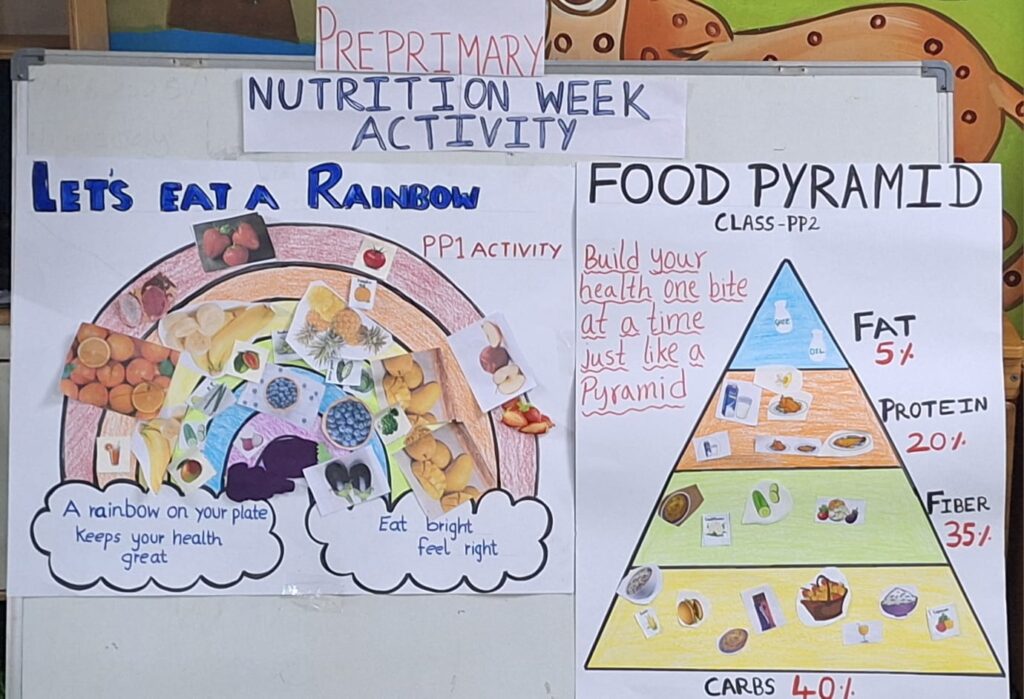 PREPRIMARY
NUTRITION WEEK
ACTIVITY
LET'S EAT A RAINBOW
PP1 ACTIVITY
A rainbow on your plate
keeps your health
great
Eat bright
feel right
FOOD PYRAMID
CLASS-PP2
Build your
health one bite
at a time
just like a
Pyramid
GHEE
OIL
FAT
5%
PROTEIN
20%
FIBER
35%
CARBS 40%